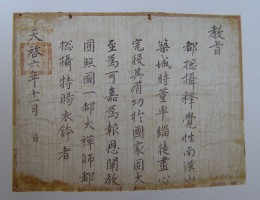 教旨
都摠攝釋覺性南漢山
築城時董率緇徒盡心
完役其有功於國家固大
至爲可嘉爲報恩闡教
圓照國一都大禪師都
摠攝特賜衣鉢者
天啓六年十一月 日